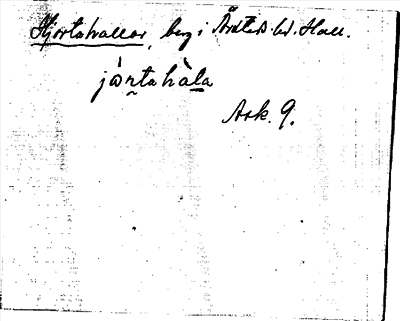 Hjortahallar, berg i Årstads hd. Hall.
jòrtahàla
Ark. 9.